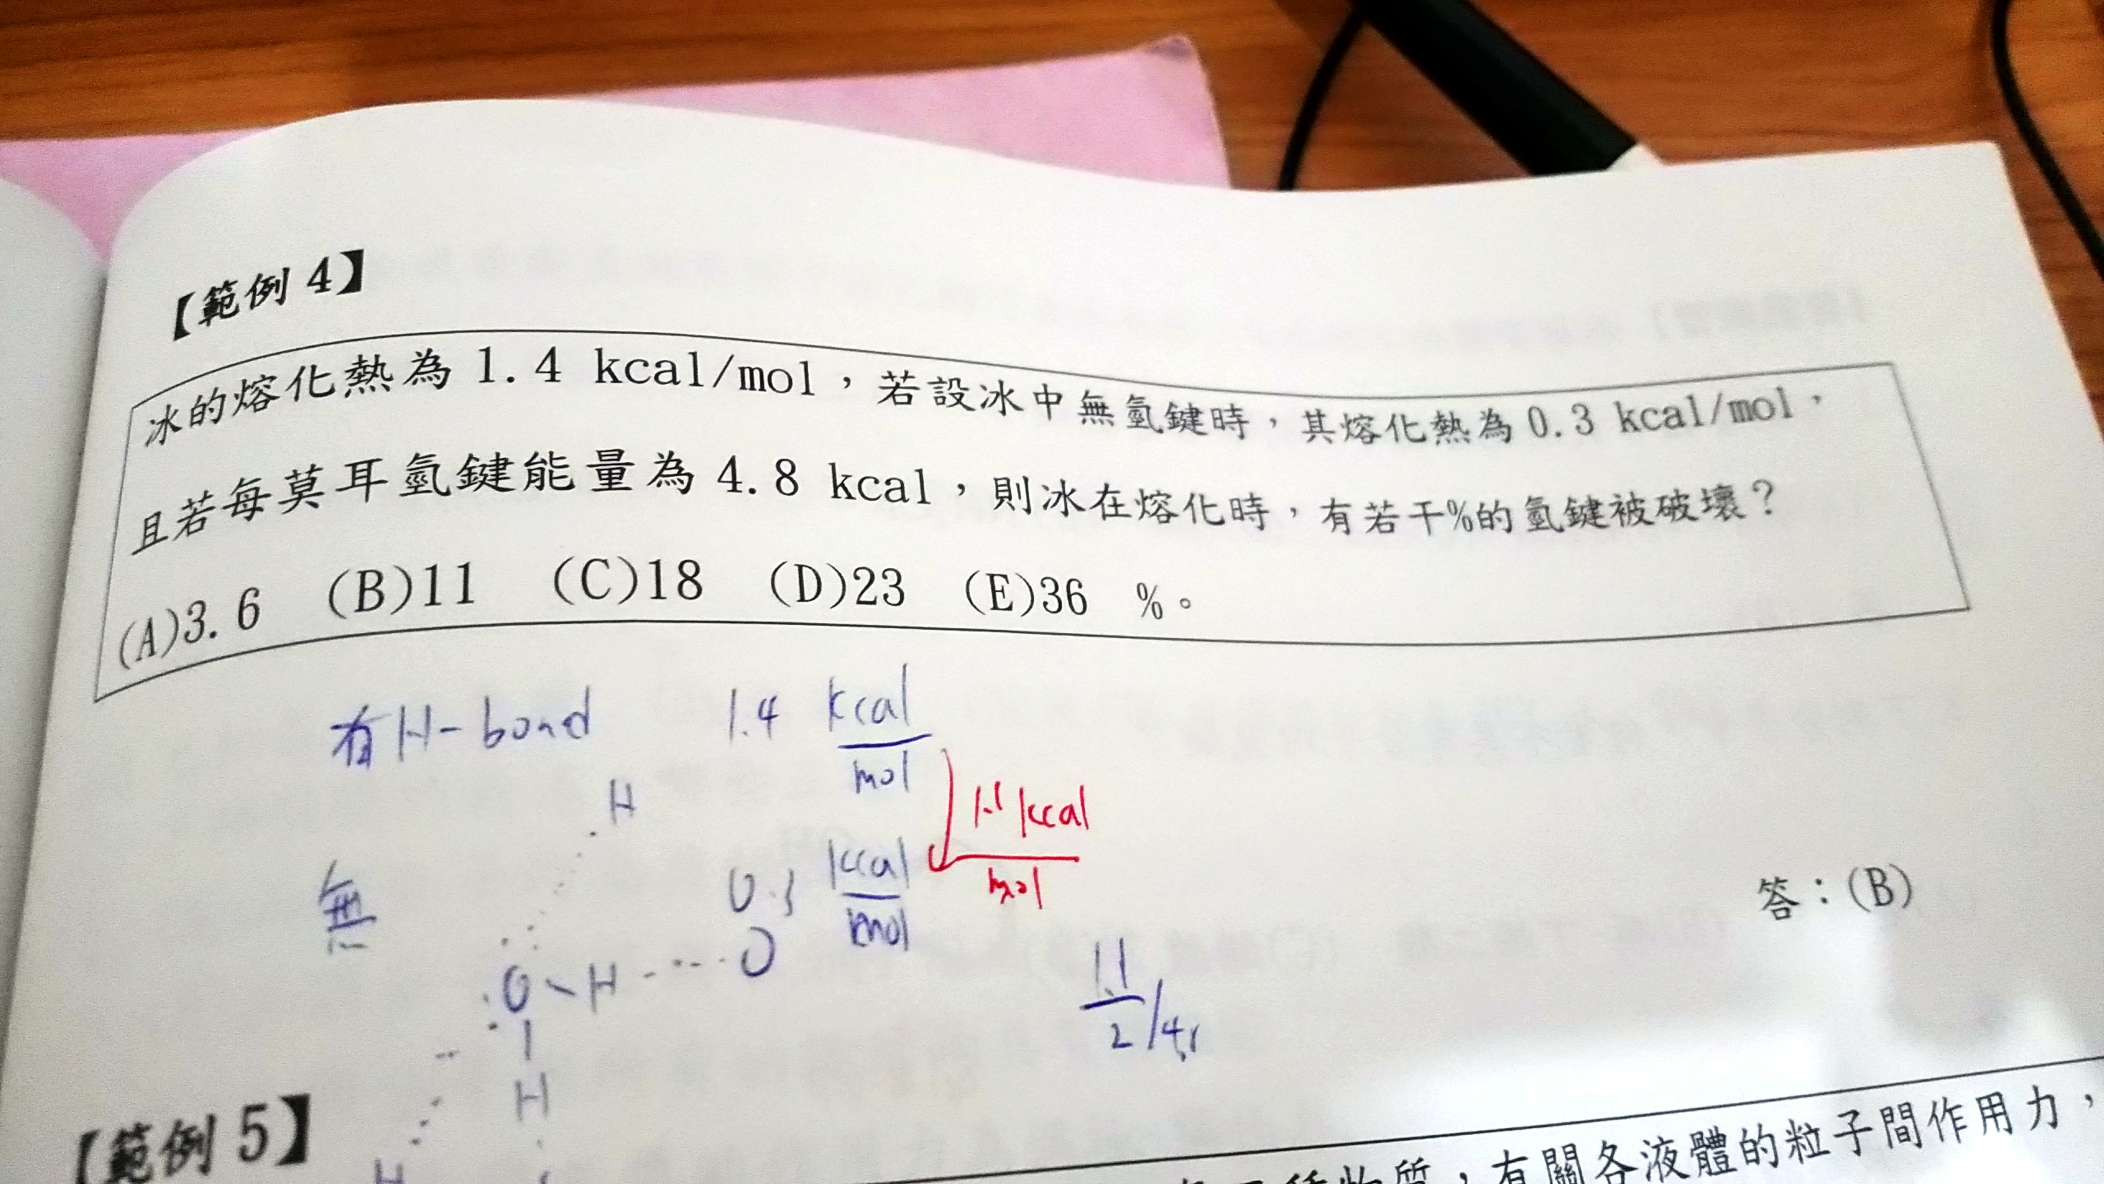 【範例 4】
冰的熔化熱為 1.4 kcal/mol，若設冰中無氫鍵時，其熔化熱為 0.3 kcal/mol，
且若每莫耳氫鍵能量為 4.8 kcal，則冰在熔化時，有若干%的氫鍵被破壞？
(A)3.6 (B)11 (C)18 (D)23 (E)36 %。
有 H-bond 1.4 kcal/mol
H
1.1 kcal/mol
無 0.3 kcal/mol
答：(B)
O-H O
1.1/2
H
H
【範例 5】
質，有關各液體的粒子間作用力，